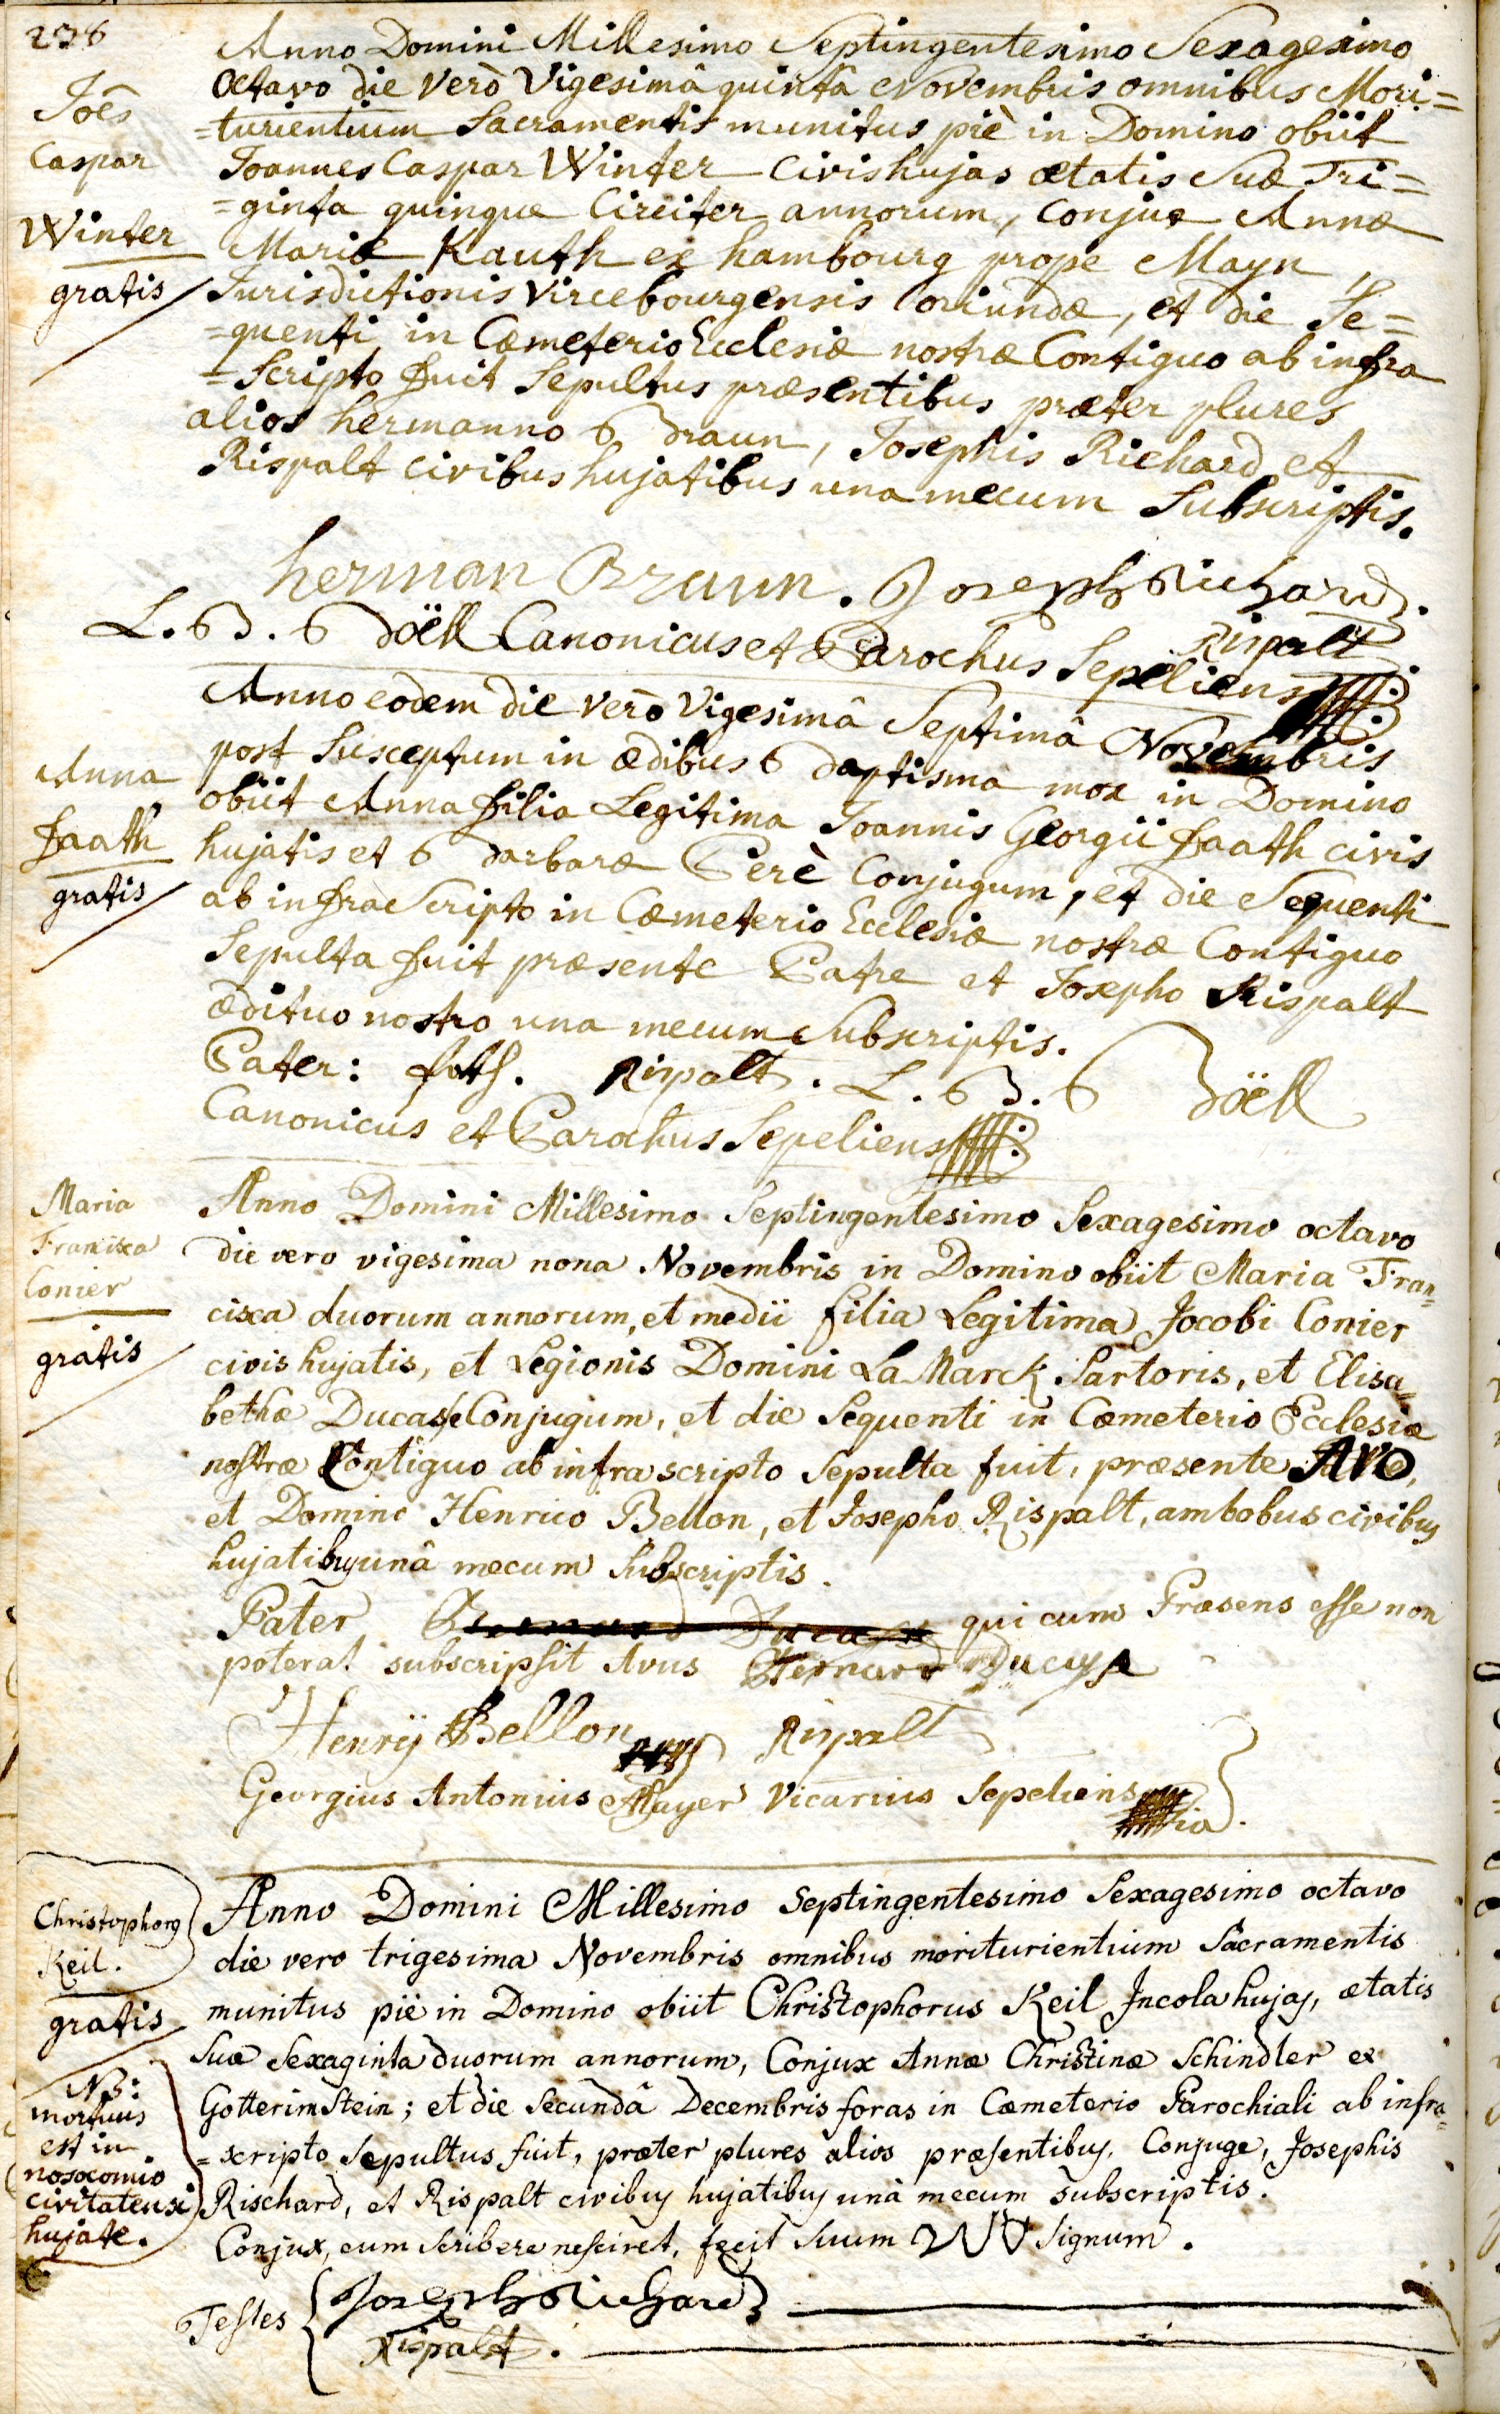 238
Joēs
Caspar
Winter
gratis
Anno Domini Millesimo Septingentesimo Sexagesimo
Octavo die verò Vigesimâ quintâ Novembris omnibus Mori=
=turientium Sacramentis munitus piè in Domino obiit
Joannes Caspar Winter Civis hujas ætatis Suæ Tri=
=ginta quinque Circiter annorum, Conjux Annæ
Mariæ Kauth ex hambourg prope Mayn,
Jurisdictionis Vircebourgensis oriundæ, et die Se=
=quenti in Cœmeterio Ecclesiæ nostræ Contiguo ab infra
=Scripto fuit Sepultus præsentibus præter plures
alios hermanno Braun, Josephis Richard et
Rispalt civibus hujatibus una mecum Subscriptis.
herman Braun. Joseph Richard.
Rispalt
L. B. Böell Canonicus et Parochus Sepeliens
Anna
Faath
gratis
Anno eodem die verò Vigesimâ Septimâ Novembris
post Susceptum in ædibus Baptisma mox in Domino
obiit Anna filia Legitima Joannis Georgii Faath civis
hujatis et Barbaræ Perè Conjugum, et die Sequenti
ab infra Scripto in Cœmeterio Ecclesiæ nostræ Contiguo
Sepulta fuit præsente Patre et Josepho Rispalt
ædituo nostro una mecum Subscriptis.
Pater: fath. Rispalt. L. B. Böell
Canonicus et Parochus Sepeliens
Maria
Francisca
Conier
gratis
Anno Domini Millesimo Septingentesimo Sexagesimo octavo
die vero vigesima nona Novembris in Domino obiit Maria Fran=
cisca duorum annorum, et medii filia Legitima Jacobi Conier
civis hujatis, et Legionis Domini La Marck Sartoris, et Elisa=
bethæ Ducasse Conjugum, et die Sequenti in Cœmeterio Ecclesiæ
nostræ Contiguo ab infra scripto Sepulta fuit, præsente AVO,
et Domino Henrico Bellon, et Josepho Rispalt, ambobus civibus
hujatibus unâ mecum Subscriptis.
Pater qui cum Præsens esse non
poterat subscripsit Avus Bernard Ducasse
Henrÿ Bellon Rispalt
Georgius Antonius Mayer Vicarius Sepeliens
Christophorus
Keil.
gratis
NB:
mortuus
est in
nosocomio
civitatensi
hujate.
Anno Domini Millesimo Septingentesimo Sexagesimo octavo
die vero trigesima Novembris omnibus moriturientium Sacramentis
munitus piè in Domino obiit Christophorus Keil Incola hujas, ætatis
Suæ Sexaginta duorum annorum, Conjux Annæ Christinæ Schindler ex
Gotterimstein; et die Secundâ Decembris foras in Cœmeterio Parochiali ab infra=
=scripto Sepultus fuit, præter plures alios præsentibus, Conjuge, Josephis
Rischard, et Rispalt civibus hujatibus unà mecum subscriptis.
Conjux, cum Scribere nesciret, fecit Suum Signum.
Testes Joseph Richard
Rispalt.